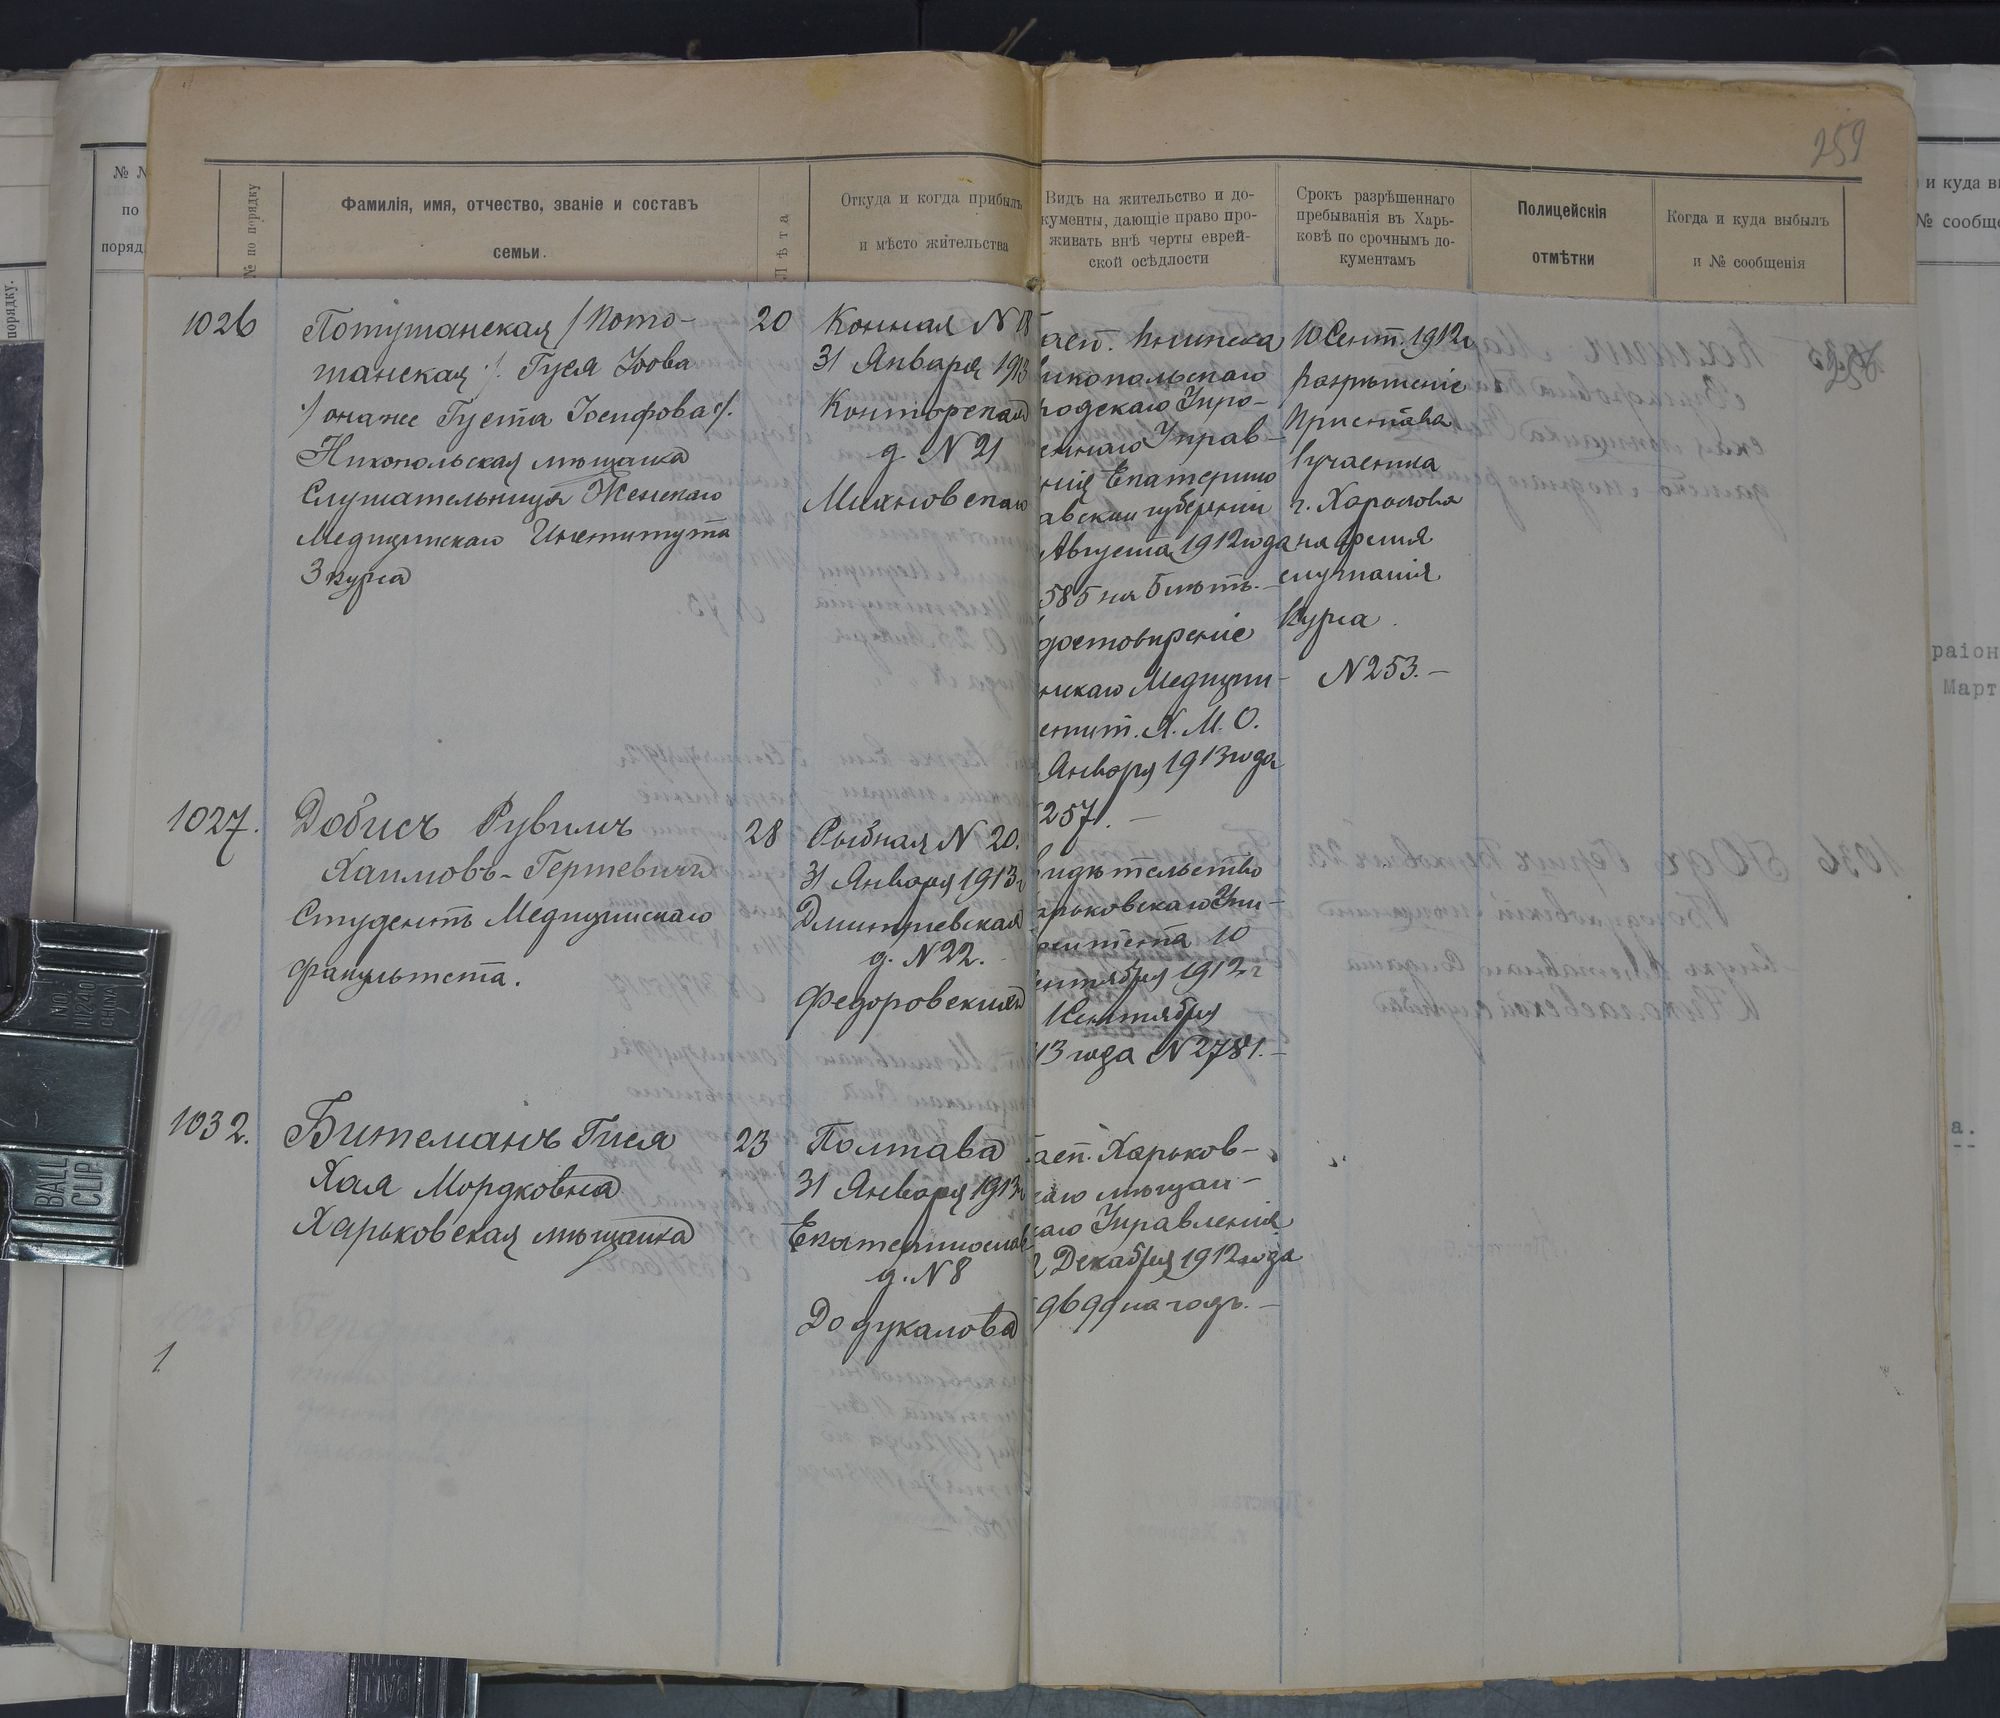 259
№ по порядку
Фамилія, имя, отчество, званіе и составъ
семьи.
Лѣта
Откуда и когда прибылъ
и мѣсто жительства
Видъ на жительство и до-
кументы, дающіе право про-
живать внѣ черты еврей-
ской осѣдлости
Срокъ разрѣшеннаго
пребыванія въ Харь-
ковѣ по срочнымъ до-
кументамъ
Полицейскія
отмѣтки
Когда и куда выбылъ
и № сообщенія
1026
Потушанская /Пото-
шанская/. Гуся Іоова
/онаже Густа Іосифова/.
Никопольская мѣщанка
Слушательница Женскаго
Медицинскаго Института
3 курса
20
Конная N 18
31 Января 1913
Конторская
д. N 21
Михновскаго
пасп. книжка
икопольскаго
родскаго Упро-
еннаго Управ-
нія Екатерино
авской губерніи
Августа 1912 года
585 на бмѣт.-
достовѣреніе
нскаго Медицин-
стит. Х. М. О.
Января 1913 года
257. —
10 Сент. 1912 г
разрѣшеніе
Пристава
1 участка
г. Харькова
на время
слушанія
курса.
N 253. —
1027.
Добисъ Рувимъ
Хаимовъ-Гершевичъ
Студентъ Медицинскаго
факультета.
28
Рыбная N 20.
31 Января 1913 г
Дмитриевская
д. N 22.
Федоровскихъ
видѣтельство
арьковскаго Уни-
рситета 10
ентября 1912 г
1 Сентября
13 года N 2781. —
1032.
Битеманъ Гися
Хая Мордковна
Харьковская мѣщанка
23
Полтава
31 Января 1913 г
Екатеринослав
д. N 8
Додукалова
пасп. Харьков-
каго мѣщан-
каго Управленія
2 Декабря 1912 года
9699 на годъ. —
1
№ №
по
поряд
порядку.
и куда вы
№ сообще
раіон
Март
а.
BALL
CLIP
NO.
112410
CHINA